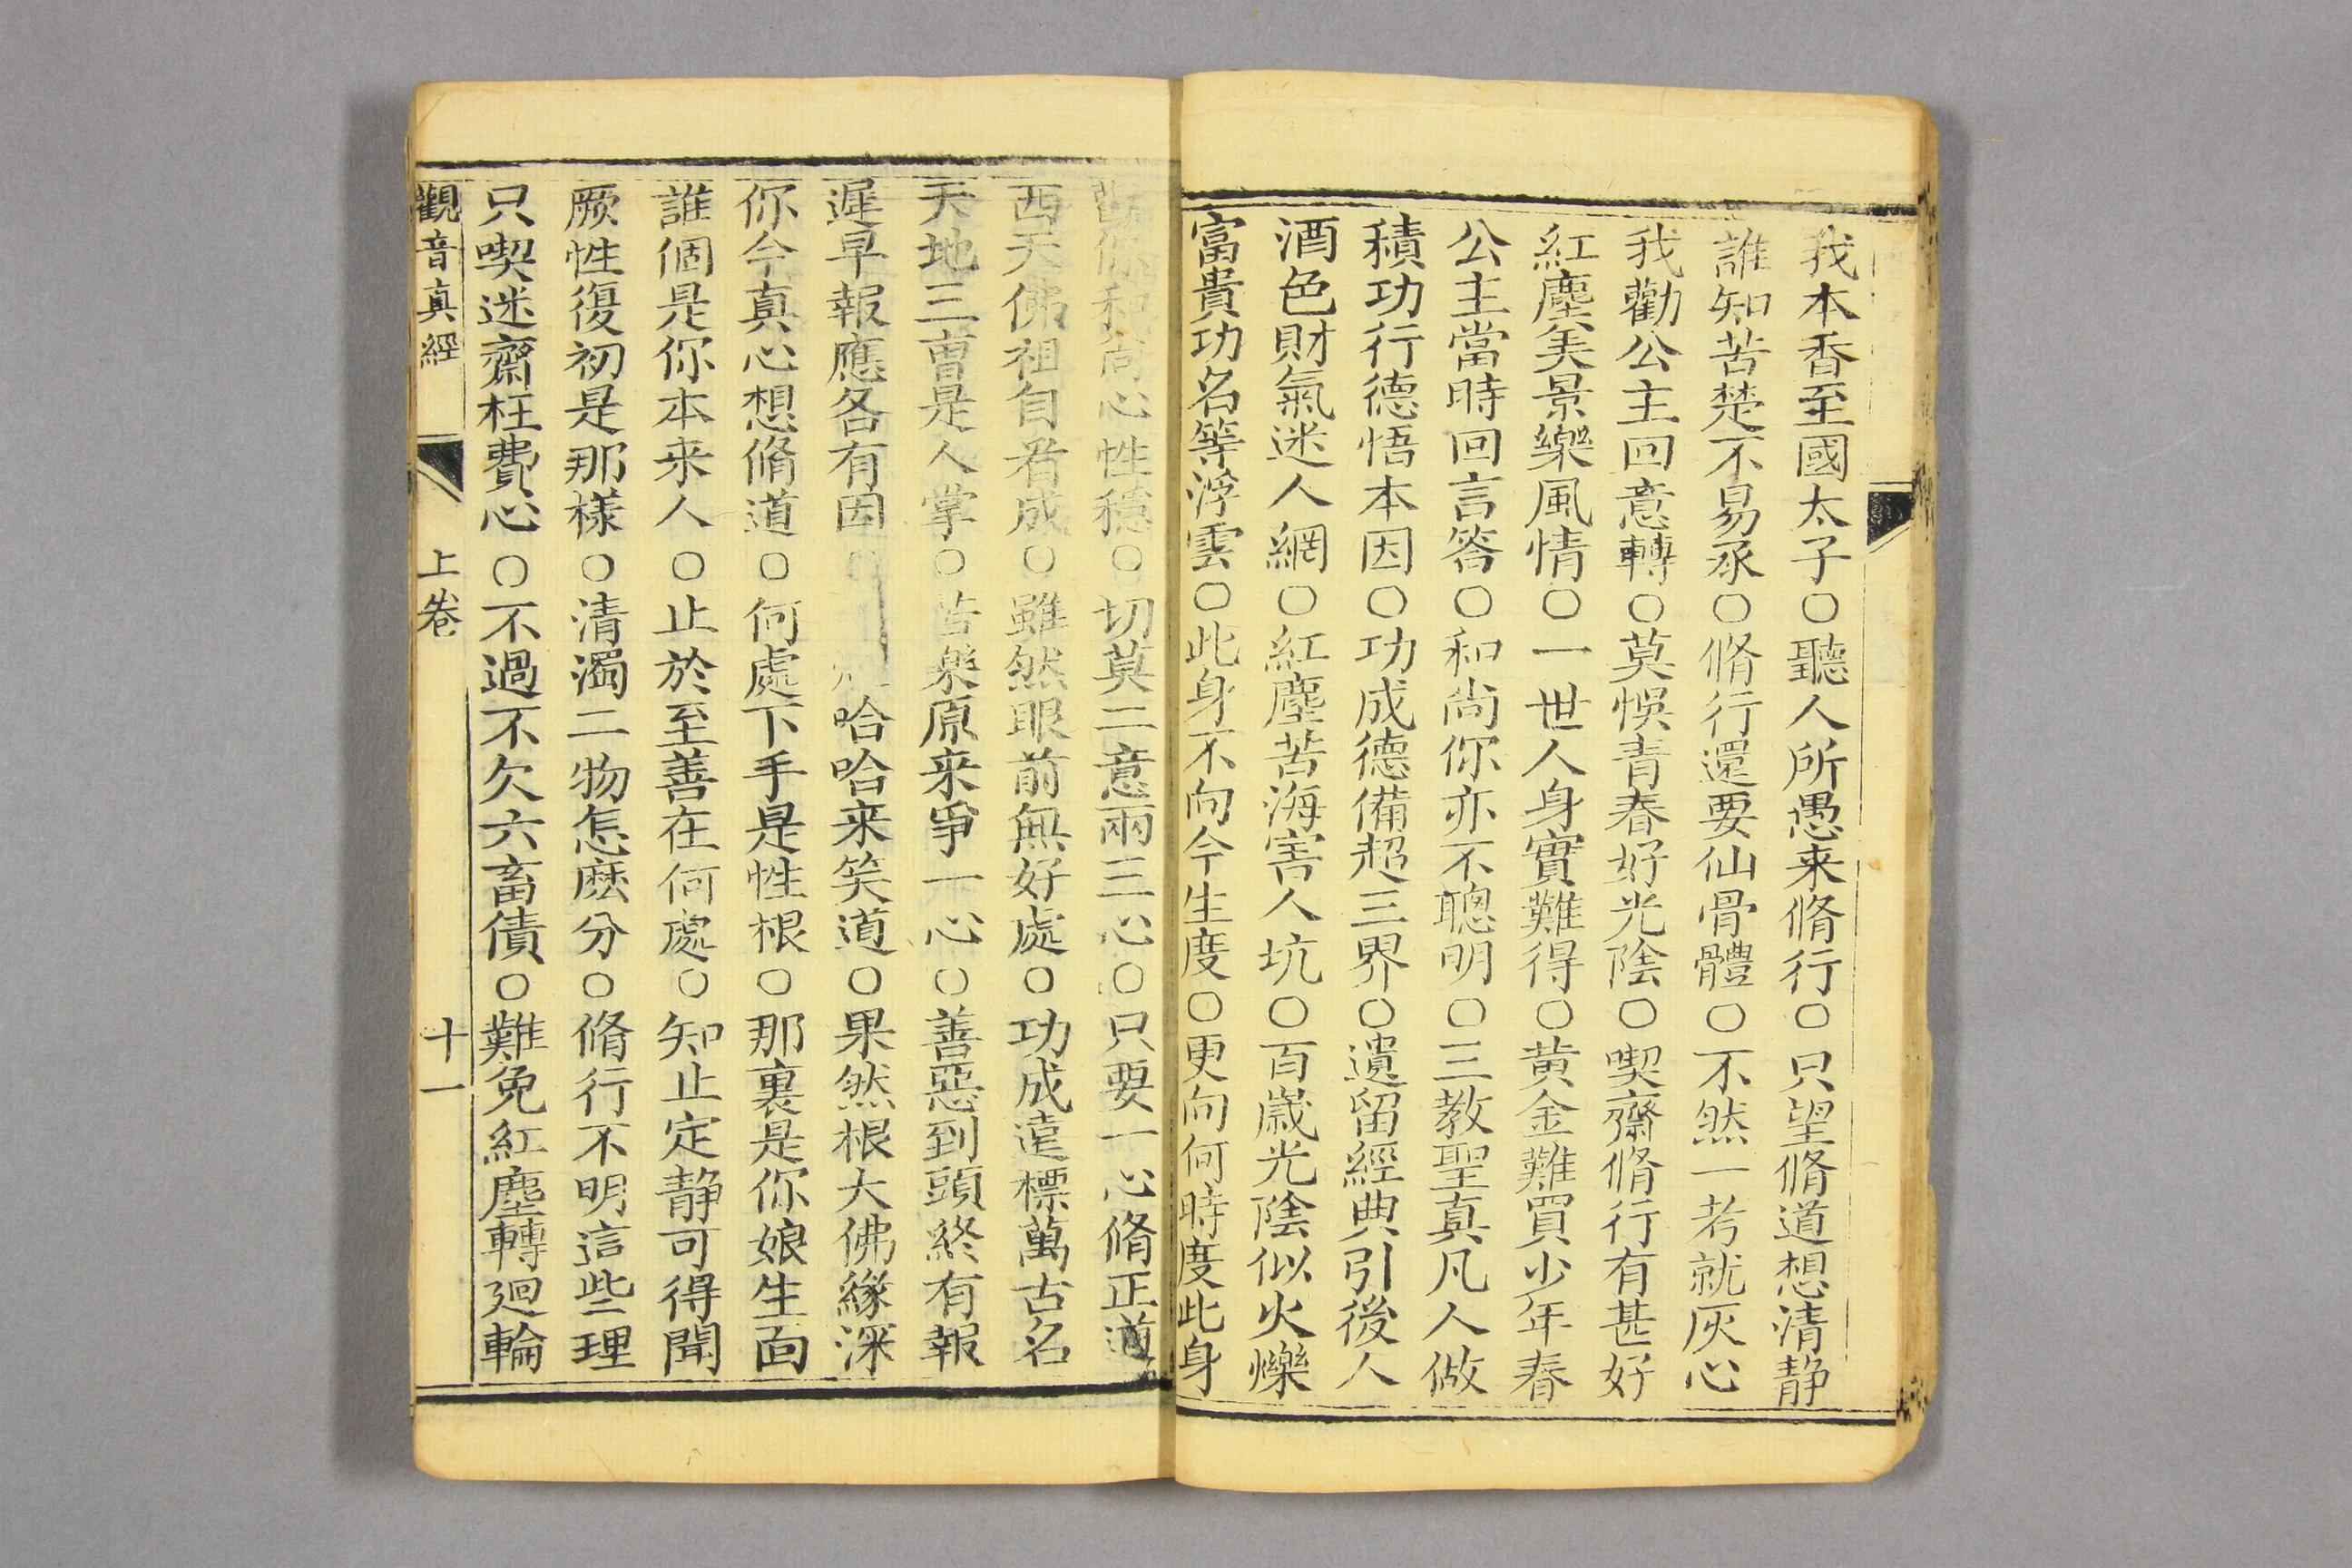 我本香至國太子○聽人所愚来脩行○只望脩道想清静
誰知苦楚不易承○脩行還要仙骨體○不然一考就灰心
我勸公主回意轉○莫悞青春好光陰○喫齋脩行有甚好
紅塵美景樂風情○一世人身實難得○黄金難買少年春
公主當時回言答○和尚你亦不聰明○三教聖真凡人做
積功行德悟本因○功成德備超三界○遺留經典引後人
酒色財氣迷人網○紅塵苦海害人坑○百歲光陰似火爍
富貴功名等浮雲○此身不向今生度○更向何時度此身
勸你和尚心性穩○切莫二意兩三心○只要一心脩正道
西天佛祖自着成○雖然眼前無好處○功成遠標萬古名
天地三曹是人掌○苦楽原来爭一心○善惡到頭終有報
遲早報應各有因○哈哈来笑道○果然根大佛緣深
你今真心想脩道○何處下手是性根○那裏是你娘生面
誰個是你本来人○止於至善在何處○知止定静可得聞
厥性復初是那樣○清濁二物怎麽分○脩行不明這些理
只喫迷齋枉費心○不過不欠六畜債○難免紅塵轉廻輪
觀音真經 上卷 十一